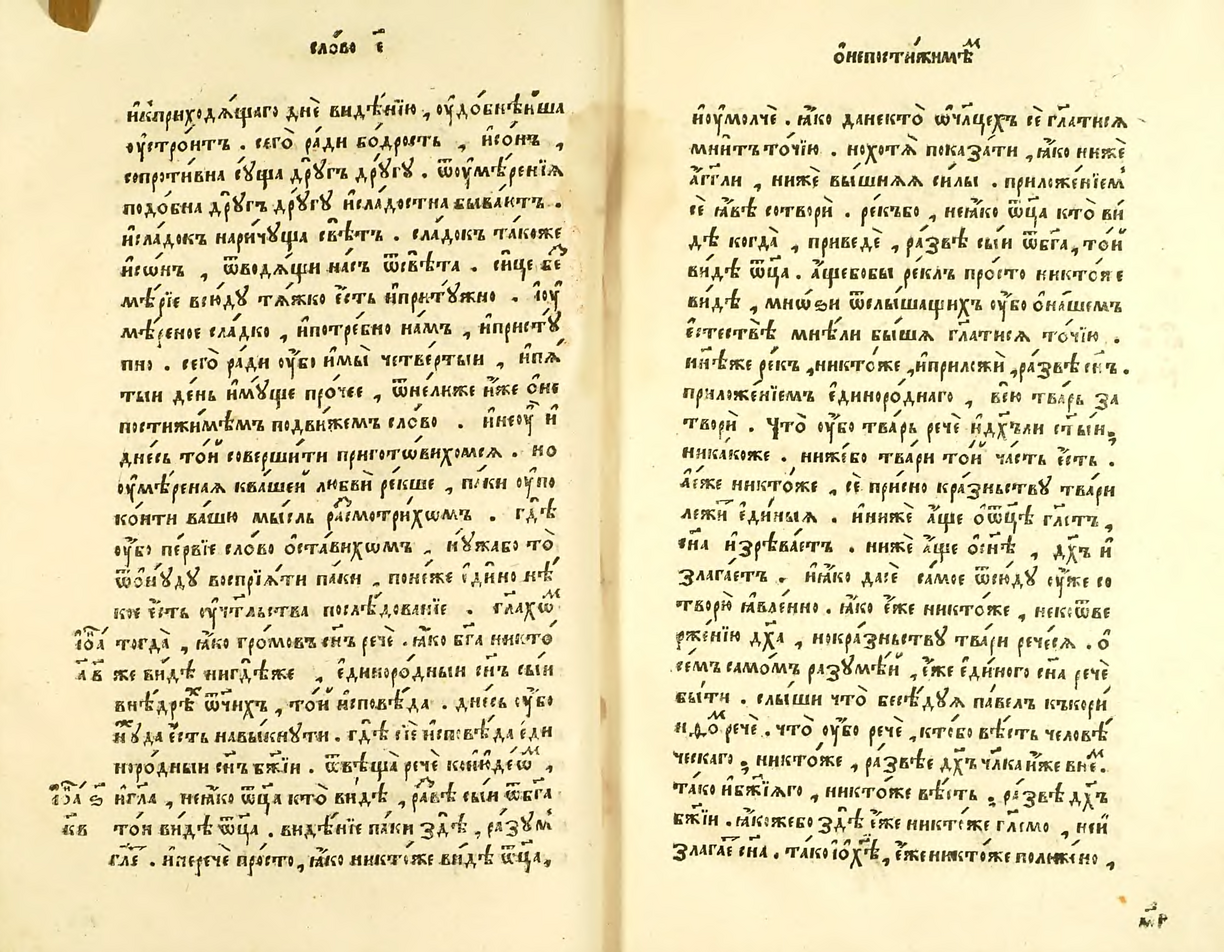 сло́во є҃
и҆к̾приходѧ́щаго днѐ видѣ́нїю, ᲂу҆добнѣ́йша
ᲂу҆стро́итъ. сего̀ ра́ди бо́дрость, и҆со́нъ,
сопроти́вна сꙋ́ща дрꙋ́гъ дрꙋ́гꙋ. ѿᲂумѣ́ренїѧ
подо́бна дрꙋ́гъ дрꙋ́гꙋ и҆сла́достна быва́ютъ.
и҆сла́докъ наричꙋ́ща свѣ́тъ. сла́докъ та́коже
и҆со́нъ, ѿводѧ́щи на́съ ѿсвѣ́та. си́це беⷥ
мѣ́рїе всю́дꙋ тѧ́жко є҆́сть и҆притꙋ́жно. ᲂу҆
мѣ́реное сла́дко, и҆потре́бно на́мъ, и҆пристꙋ́
пно. сего̀ ра́ди ᲂу҆́бо и҆мы̀ четве́ртыи, и҆пѧ́
тыи де́нь и҆мꙋ́ще про́чее, ѿне́лиже и҆́же ѡ҆не
постижи́мѣмъ подви́жемъ сло́во. и҆неᲂу҆̀ и҆
дне́сь то́й соверши́ти пригото́вихомсѧ. но
ᲂу҆мѣ́ренаѧ ква́шей любвѝ ре́кше, па́ки ᲂу҆по
ко́ити ва́шю мы́сль расмотри́хѡмъ. гдѣ̀
ᲂу҆́бо пе́рвїе сло́во ѡ҆ста́вихѡмъ, нꙋ́жабо то̀
ѿѻ҆нꙋ́дꙋ воспрїѧ́ти па́ки, поне́же є҆ди́но нѣ́
кое є҆́сть ᲂу҆чт҃льства послѣ́дованїе. гл҃ахѡⷨ
і҆ѡ҃а тогда̀, ꙗ҆́ко гро́мовъ сн҃ъ речѐ. ꙗ҆́ко бг҃а никто́
а҃ в҃ же ви́дѣ нигдѣ́же, є҆диноро́дныи сн҃ъ сы́и
внѣ́дрѣⷯ ѿч҃ихъ, то́й и҆сповѣ́да. дне́сь ᲂу҆́бо
ѿкꙋ́да є҆́сть навы́кнꙋти. гдѣ̀ сїѐ и҆сповѣ́да є҆ди
норо́дныи сн҃ъ бж҃їи. ѿвѣща̀ речѐ коию́деѡⷨ,
і҆ѡ҃а ѕ҃ и҆гл҃а, неꙗ҆́ко ѿц҃а кто̀ ви́дѣ, раⷥвѣ̀ сы́и ѿбг҃а
к҃в то́и ви́дѣ ѿц҃а. видѣ́нїе па́ки здѣ̀, ра́зꙋмъ
гл҃е. и҆перечѐ про́сто, ꙗ҆́ко никто́же ви́дѣ ѿц҃а,
ѡ҆непостижи́мѣⷨ
и҆ᲂу҆молчѐ. ꙗ҆́ко данекто̀ ѡ҆чл҃цехъ сѐ гл҃атисѧ
мни́тъ то́чїю. нохотѧ̀ показа́ти, ꙗ҆́ко нижѐ
а҆́гг҃ли, нижѐ вы́шнѧѧ си́лы. приложе́нїем̾
сѐ ꙗ҆́вѣ сотворѝ. ре́къбо, неꙗ҆́ко ѿц҃а кто̀ ви́
дѣ когда̀, приведѐ, ра́звѣ сы́и ѿбг҃а, то́й
ви́дѣ ѿц҃а. а҆́щебобы ре́клъ про́сто никто́же
ви́дѣ, мно́ѕи ѿслы́шащихъ ᲂу҆́бо ѡ҆на́шемъ
є҆стествѣ̀ мнѣ́ли бы́шѧ гл҃атисѧ то́чїю.
ни́ѣже ре́къ, никто́же, и҆приложѝ, ра́звѣ сн҃ъ.
приложе́нїемъ є҆диноро́днаго, всю̀ тва́рь за
творѝ. что̀ ᲂу҆́бо тва́рь речѐ и҆дх҃ъли ст҃ыи;
ника́коже. ниже́бо тва́ри то́й ча́сть є҆́сть.
а҆е́же никто́же, сѐ при́сно кра́зньствꙋ тва́ри
лежи́т̾ є҆ди́ныѧ. и҆нижѐ а҆́ще ѡ҆ѿц҃ѣ гл҃етъ,
сн҃а и҆зрѣва́етъ. нижѐ а҆́ще ѡ҆сн҃ѣ, дх҃ъ и҆
злага́етъ. и҆ꙗ҆́ко да сѐ са́мое ѿсю́дꙋ ᲂу҆́же со
творю̀ ꙗ҆вле́нно. ꙗ҆́ко є҆́же никто́же, некѡ҆тве
рже́нїю дх҃а, нокра́зньствꙋ тва́ри рече́сѧ. ѡ҆
се́мъ само́мъ разꙋмѣ́й, є҆́же є҆ди́ного сн҃а речѐ
бы́ти. слы́ши что̀ бесѣ́дꙋѧ па́велъ къкори́
нѳѡⷨ речѐ. что̀ ᲂу҆́бо речѐ, кто́бо вѣ́сть человѣ́
ческаго; никто́же, ра́звѣе дх҃ъ чл҃ка и҆́же вне́ⷨ.
та́ко и҆бж҃їѧго, никто́же вѣ́сть; ра́звѣ дх҃ъ
бж҃їи. ꙗ҆́кожебо здѣ̀ є҆́же никто́же гл҃емо, неи҆
злага́е сн҃а. та́ко і҆ѡ҆хⷭ҇ѣ, є҆́же никто́же поло́жено,